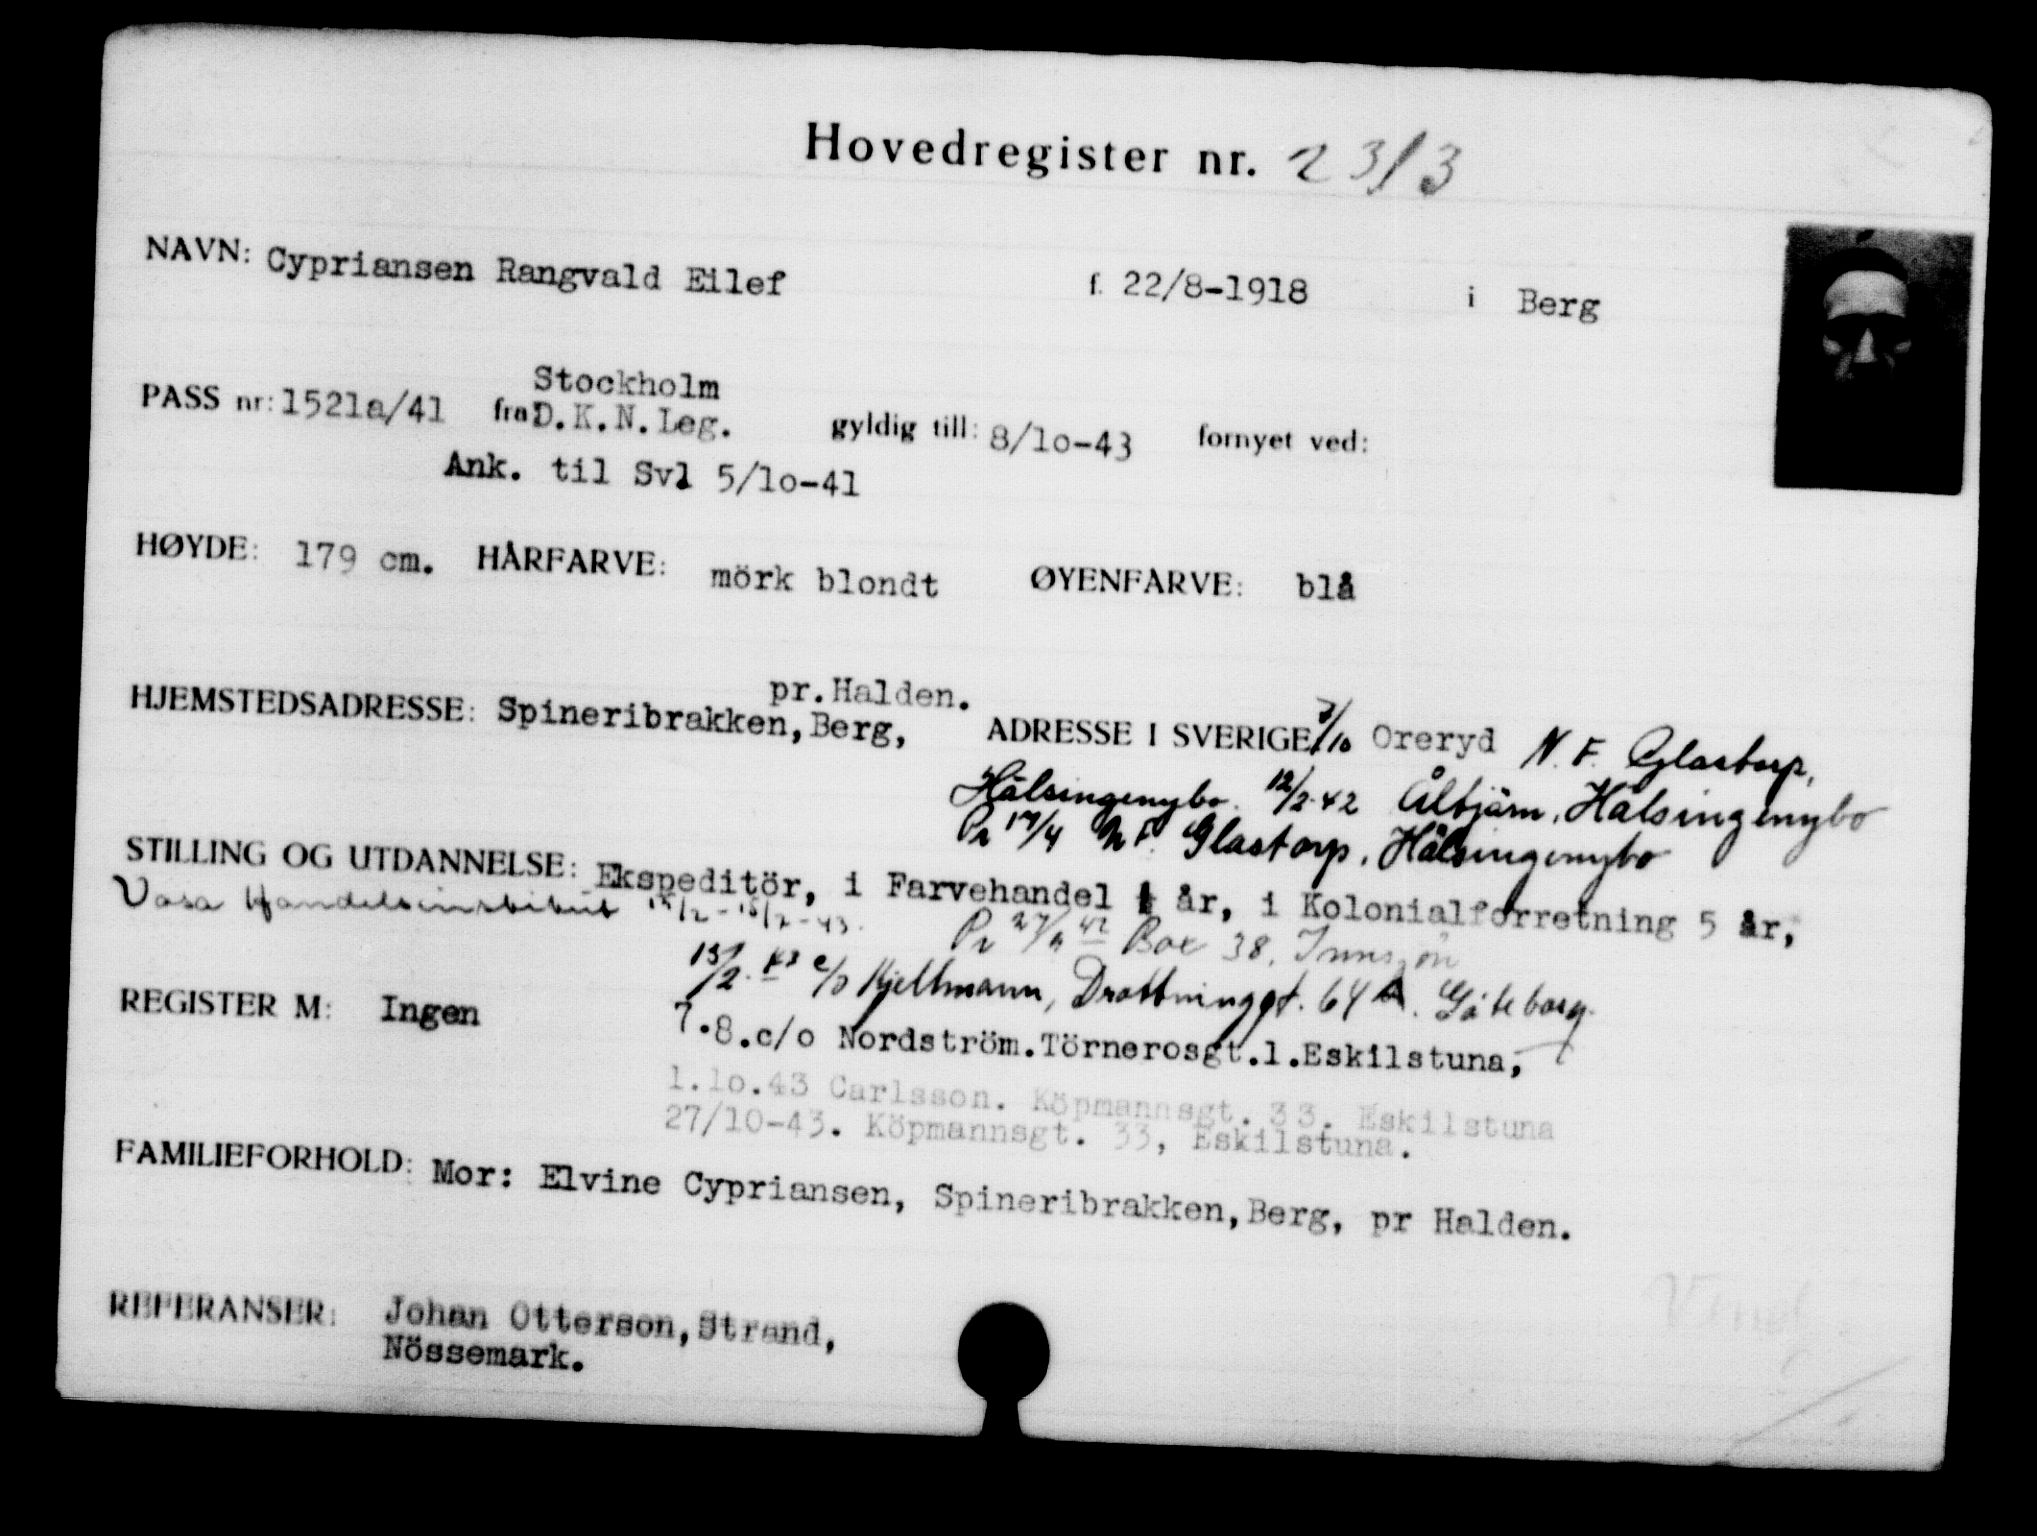 Hovedregister nr. 2313
NAVN: Cypriansen Rangvald Eilef f. 22/8-1918 i Berg
Stockholm
PASS nr: 1521a/41 fra D.K.N.Leg. gyldig till: 8/1o-43 fornyet ved:
Ank. til Svl 5/1o-41
HØYDE: 179 cm. HÅRFARVE: mörk blondt ØYENFARVE: blå
pr.Halden.
HJEMSTEDSADRESSE: Spineribrakken,Berg, ADRESSE I SVERIGE: 7/10 Oreryd N. F. Glastorp,
Hälsingenybo. 12/2-42 Åltjärn, Hälsingenybo
Pr 17/4 N F. Glastorp, Hälsingenybo
STILLING OG UTDANNELSE: Ekspeditör, i Farvehandel år, i Kolonialforretning 5 år,
Vasa Handelsinstitut 15/2-15/7-43.
Pr 42 Box 38, Innsjön
15/2-43 c/o Kjellmann, Drottninggt. 64 A. Göteborg.
REGISTER M: Ingen
7.8.c/o Nordström.Törnerosgt.1.Eskilstuna,
1.1o.43 Carlsson. Köpmannsgt. 33. Eskilstuna
27/10-43. Köpmannsgt. 33, Eskilstuna.
FAMILIEFORHOLD: Mor: Elvine Cypriansen, Spineribrakken,Berg, pr Halden.
REFERANSER: Johan Otterson,Strand,
Nössemark.
Vend